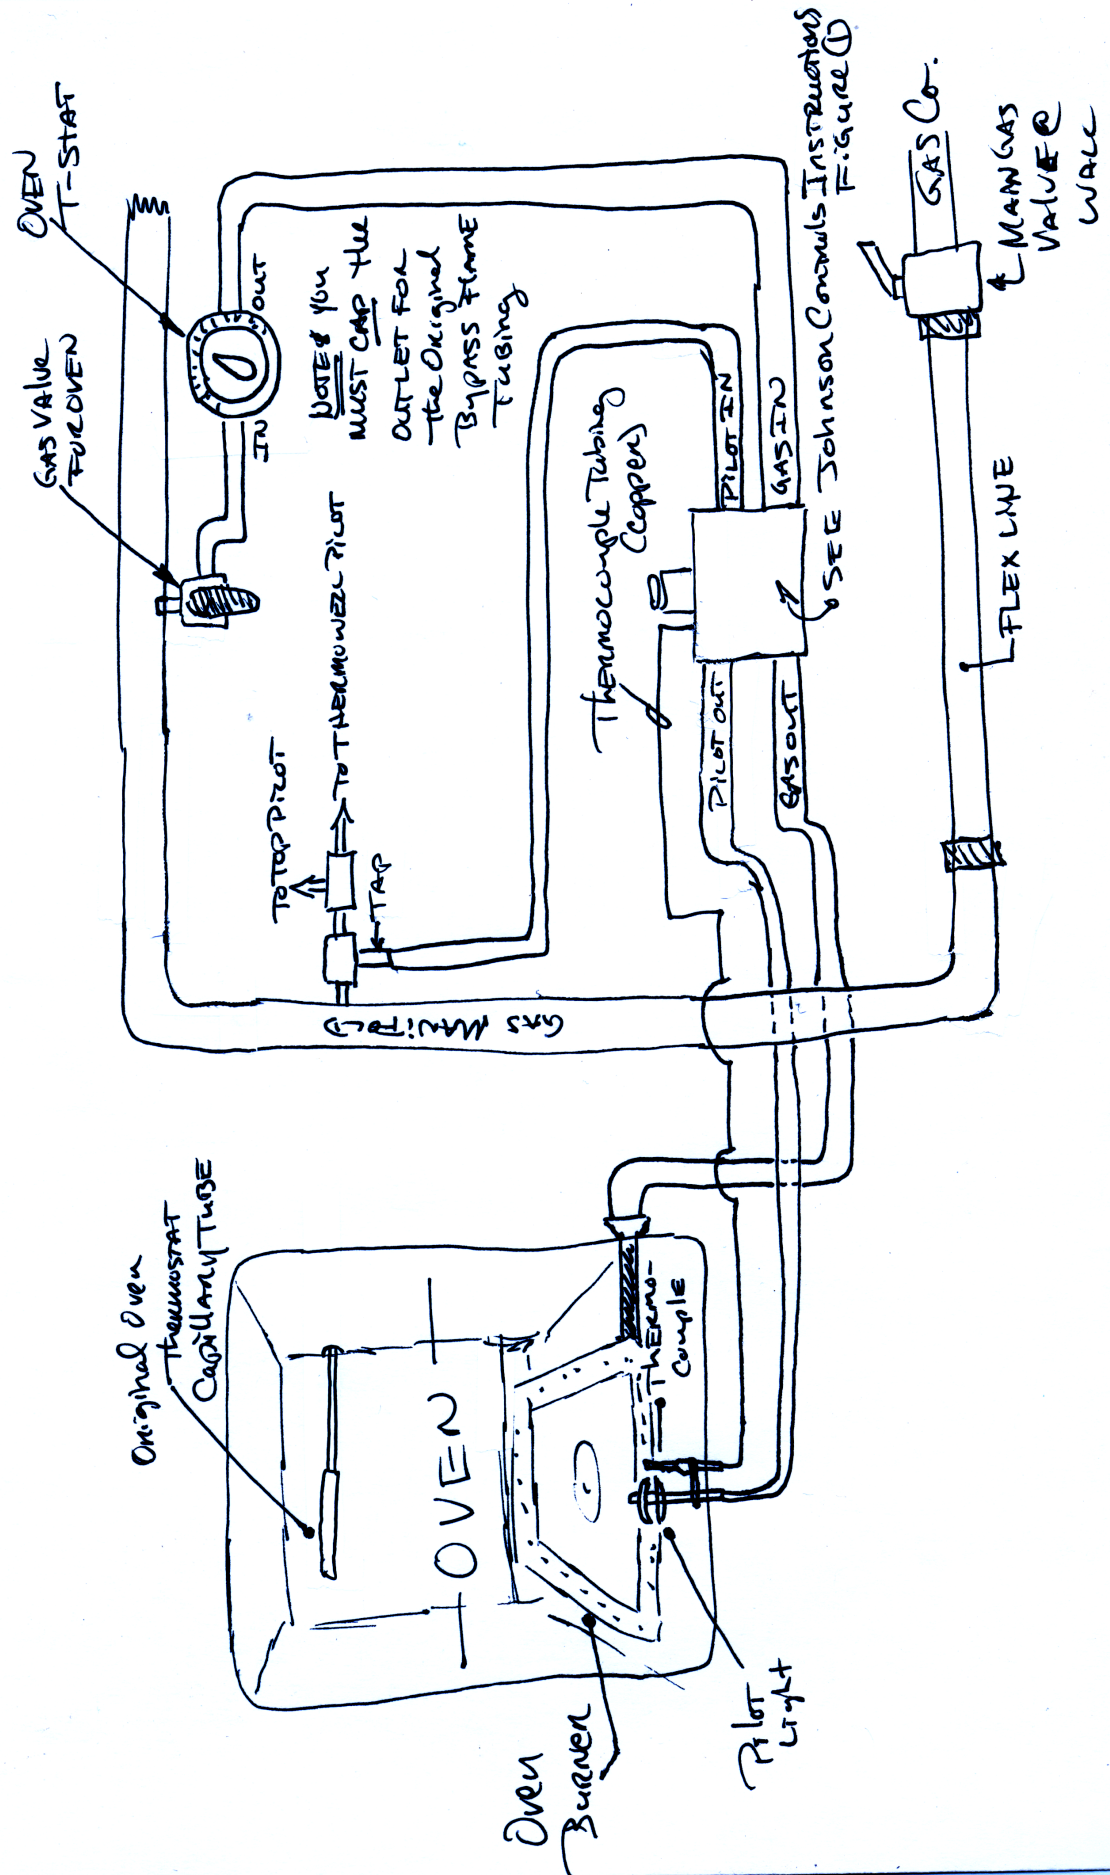 OVEN
T-STAT
GAS VALVE
FOR OVEN
IN
OUT
NOTE: YOU
MUST CAP the
OUTLET FOR
the Original
Bypass Flame
Tubing
TO TOP PILOT
TO THERMOWELL PILOT
TAP
GAS MANIFOLD
Thermocouple Tubing
(Copper)
PILOT IN
GAS IN
PILOT OUT
GAS OUT
SEE Johnson Controls Instructions
FIGURE 1
GAS Co.
MAIN GAS
VALVE @
WALL
FLEX LINE
Original Oven
Thermostat
Capillary TUBE
OVEN
THERMO-
Couple
Oven
Burner
Pilot
Light